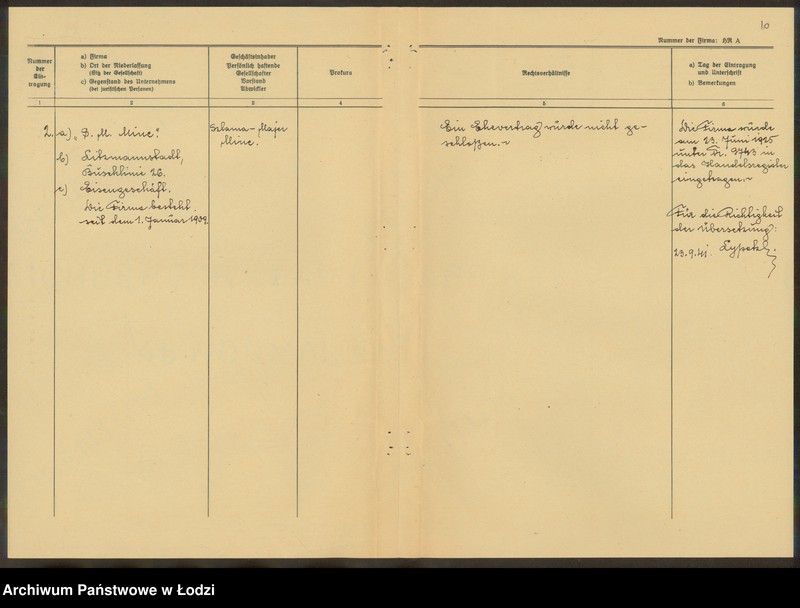 10
Nummer der Firma: HR A
Nummer
der
Ein-
tragung
a) Firma
b) Ort der Niederlassung
(Sitz der Gesellschaft)
c) Gegenstand des Unternehmens
(bei juristischen Personen)
Geschäftsinhaber
Persönlich haftende
Gesellschafter
Vorstand
Abwickler
Prokura
Rechtsverhältnisse
a) Tag der Eintragung
und Unterschrift
b) Bemerkungen
1 2 3 4 5 6
2. a) „S. M. Minc."
b) Litzmannstadt,
26.
c) Eisengeschäft.
Die Firma besteht
seit dem 1. Januar 1909.
Szlama-Majer
Minc.
Ein Ehevertrag wurde nicht ge-
schlossen.
Die Firma wurde
am 23. Juni 1925
unter Nr. 9743 in
das Handelsregister
eingetragen.
Für die Richtigkeit
der Übersetzung:
23.9.41.
Archiwum Państwowe w Łodzi